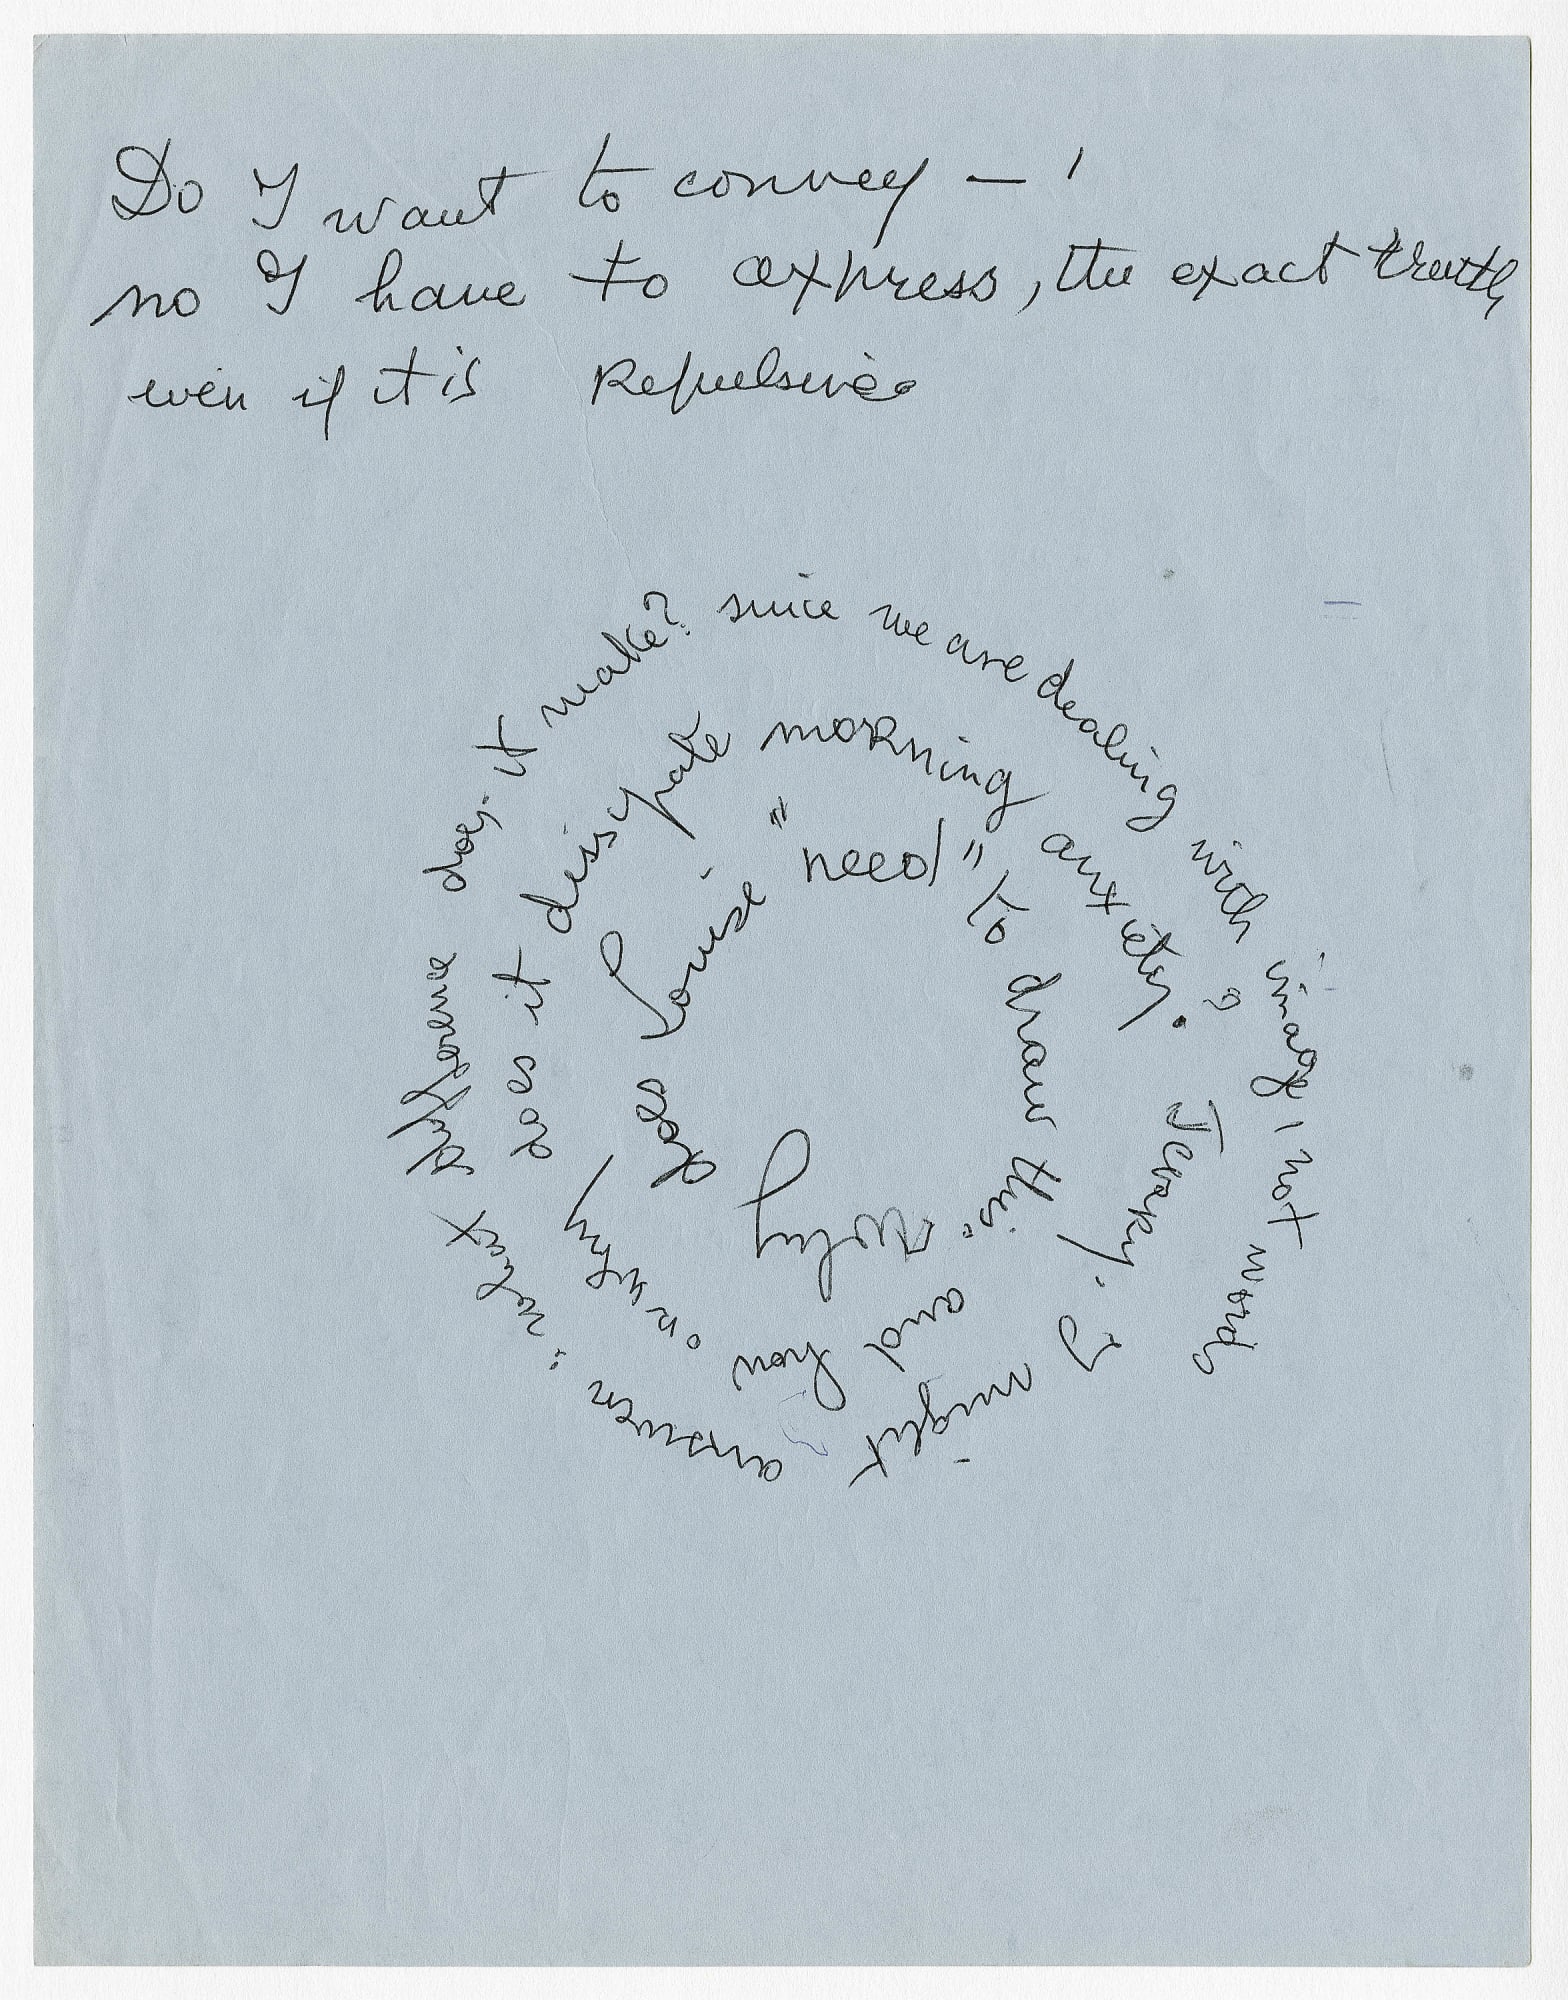 Do I want to convey —
no I have to express, the exact truth
even if it is Repulsive.
Why does Louise "need" to draw this. and how or why does it dissipate morning anxiety? I might answer: what difference does it make? since we are dealing with image, not words